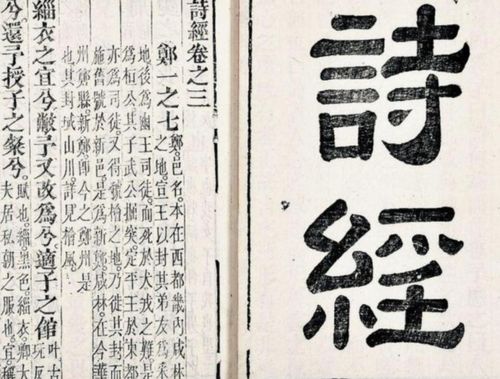 詩經
詩經卷之三
鄭一之七
鄭邑名。本在西都畿內咸林
之地。宣王以封其弟友爲采
地後爲幽王司徒而死於犬戎之難是
爲桓公其子武公掘突定平王於東都
亦爲司徒又得虢檜之地乃徙其封而
施舊號於新邑是爲新鄭咸林在今華
州鄭縣新鄭卽今之鄭州是
也其封域山川詳見檜風。
緇衣之宜兮敝予又改爲兮適子之館
叶古
玩反
兮還予授子之粲兮。
賦也緇黑色緇衣卿大
夫居私朝之服也宜稱